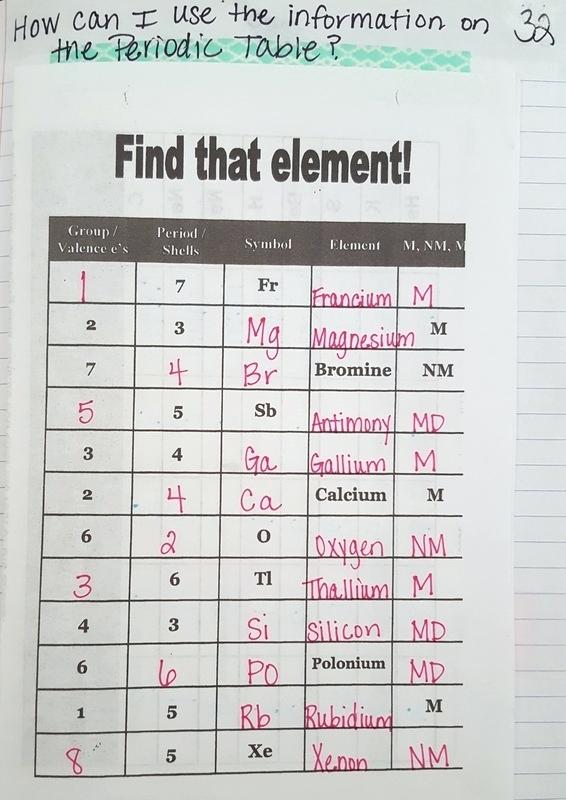 How can I use the information on 32
the Periodic Table?
Find that element!
Group / Valence e's Period / Shells Symbol Element M, NM, M
1 7 Fr Francium M
2 3 Mg Magnesium M
7 4 Br Bromine NM
5 5 Sb Antimony MD
3 4 Ga Gallium M
2 4 Ca Calcium M
6 2 O Oxygen NM
3 6 Tl Thallium M
4 3 Si Silicon MD
6 6 PO Polonium MD
1 5 Rb Rubidium M
8 5 Xe Xenon NM